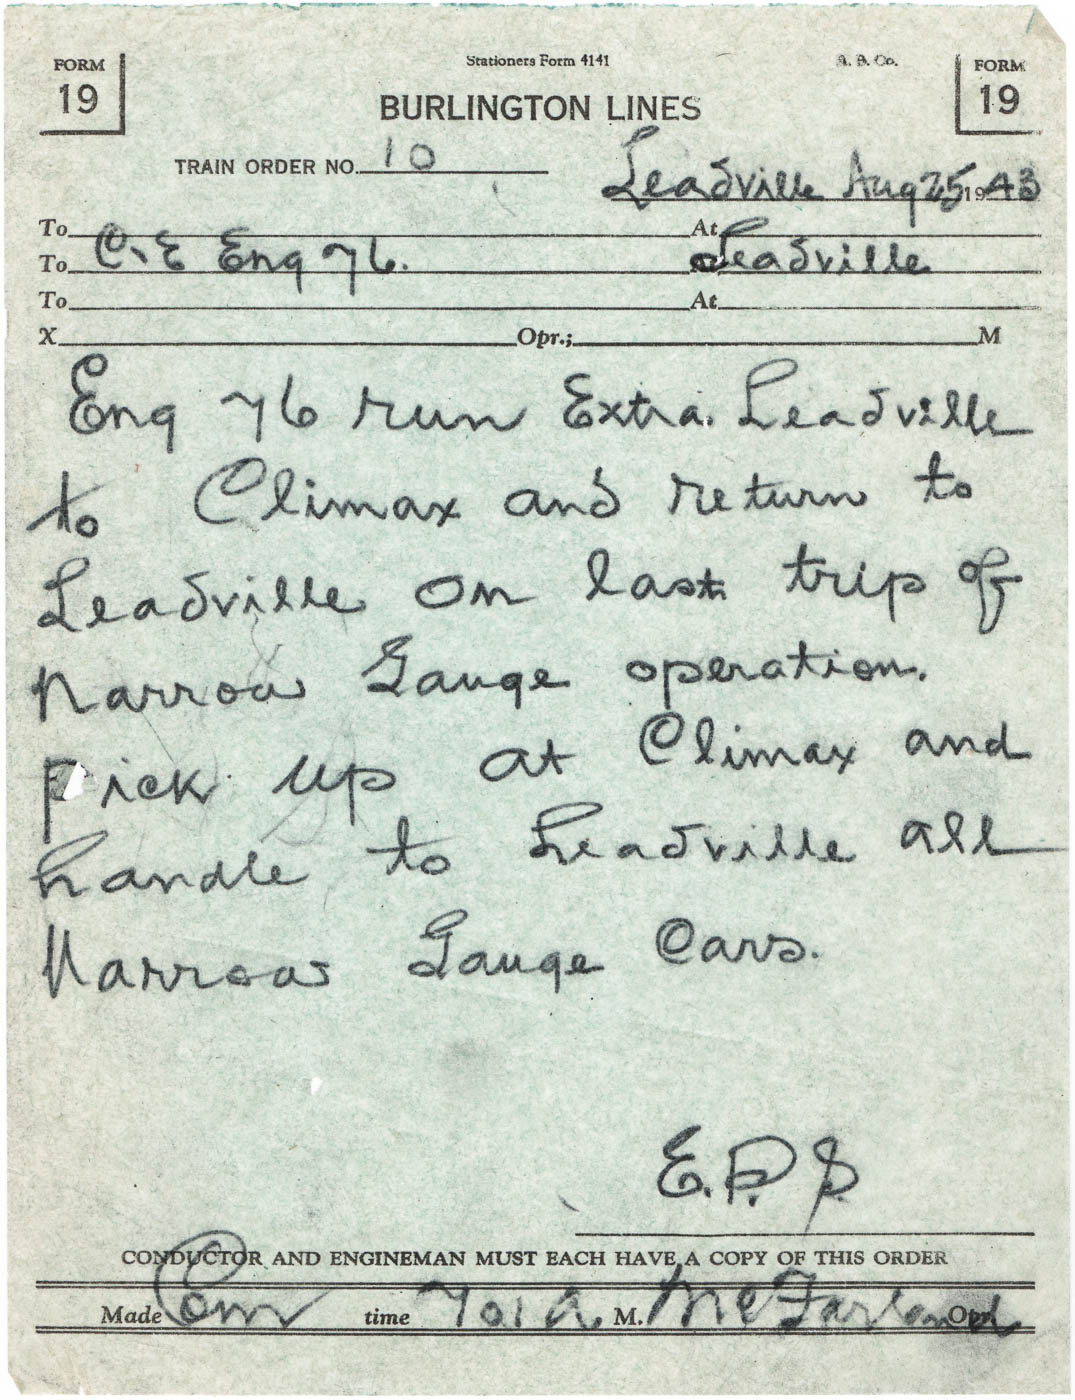 FORM 19
Stationers Form 4141
BURLINGTON LINES
FORM 19
TRAIN ORDER NO. 10
Leadville Aug 25 1943
To At
To C&E Eng 76. At Leadville
To At
X Opr.; M
Eng 76 run Extra. Leadville
to Climax and return to
Leadville on last trip of
Narrow Gauge operation.
Pick up at Climax and
handle to Leadville all
Narrow Gauge Cars.
E.P.S.
CONDUCTOR AND ENGINEMAN MUST EACH HAVE A COPY OF THIS ORDER
Made Com time 701 A. M. McFarland Opr.